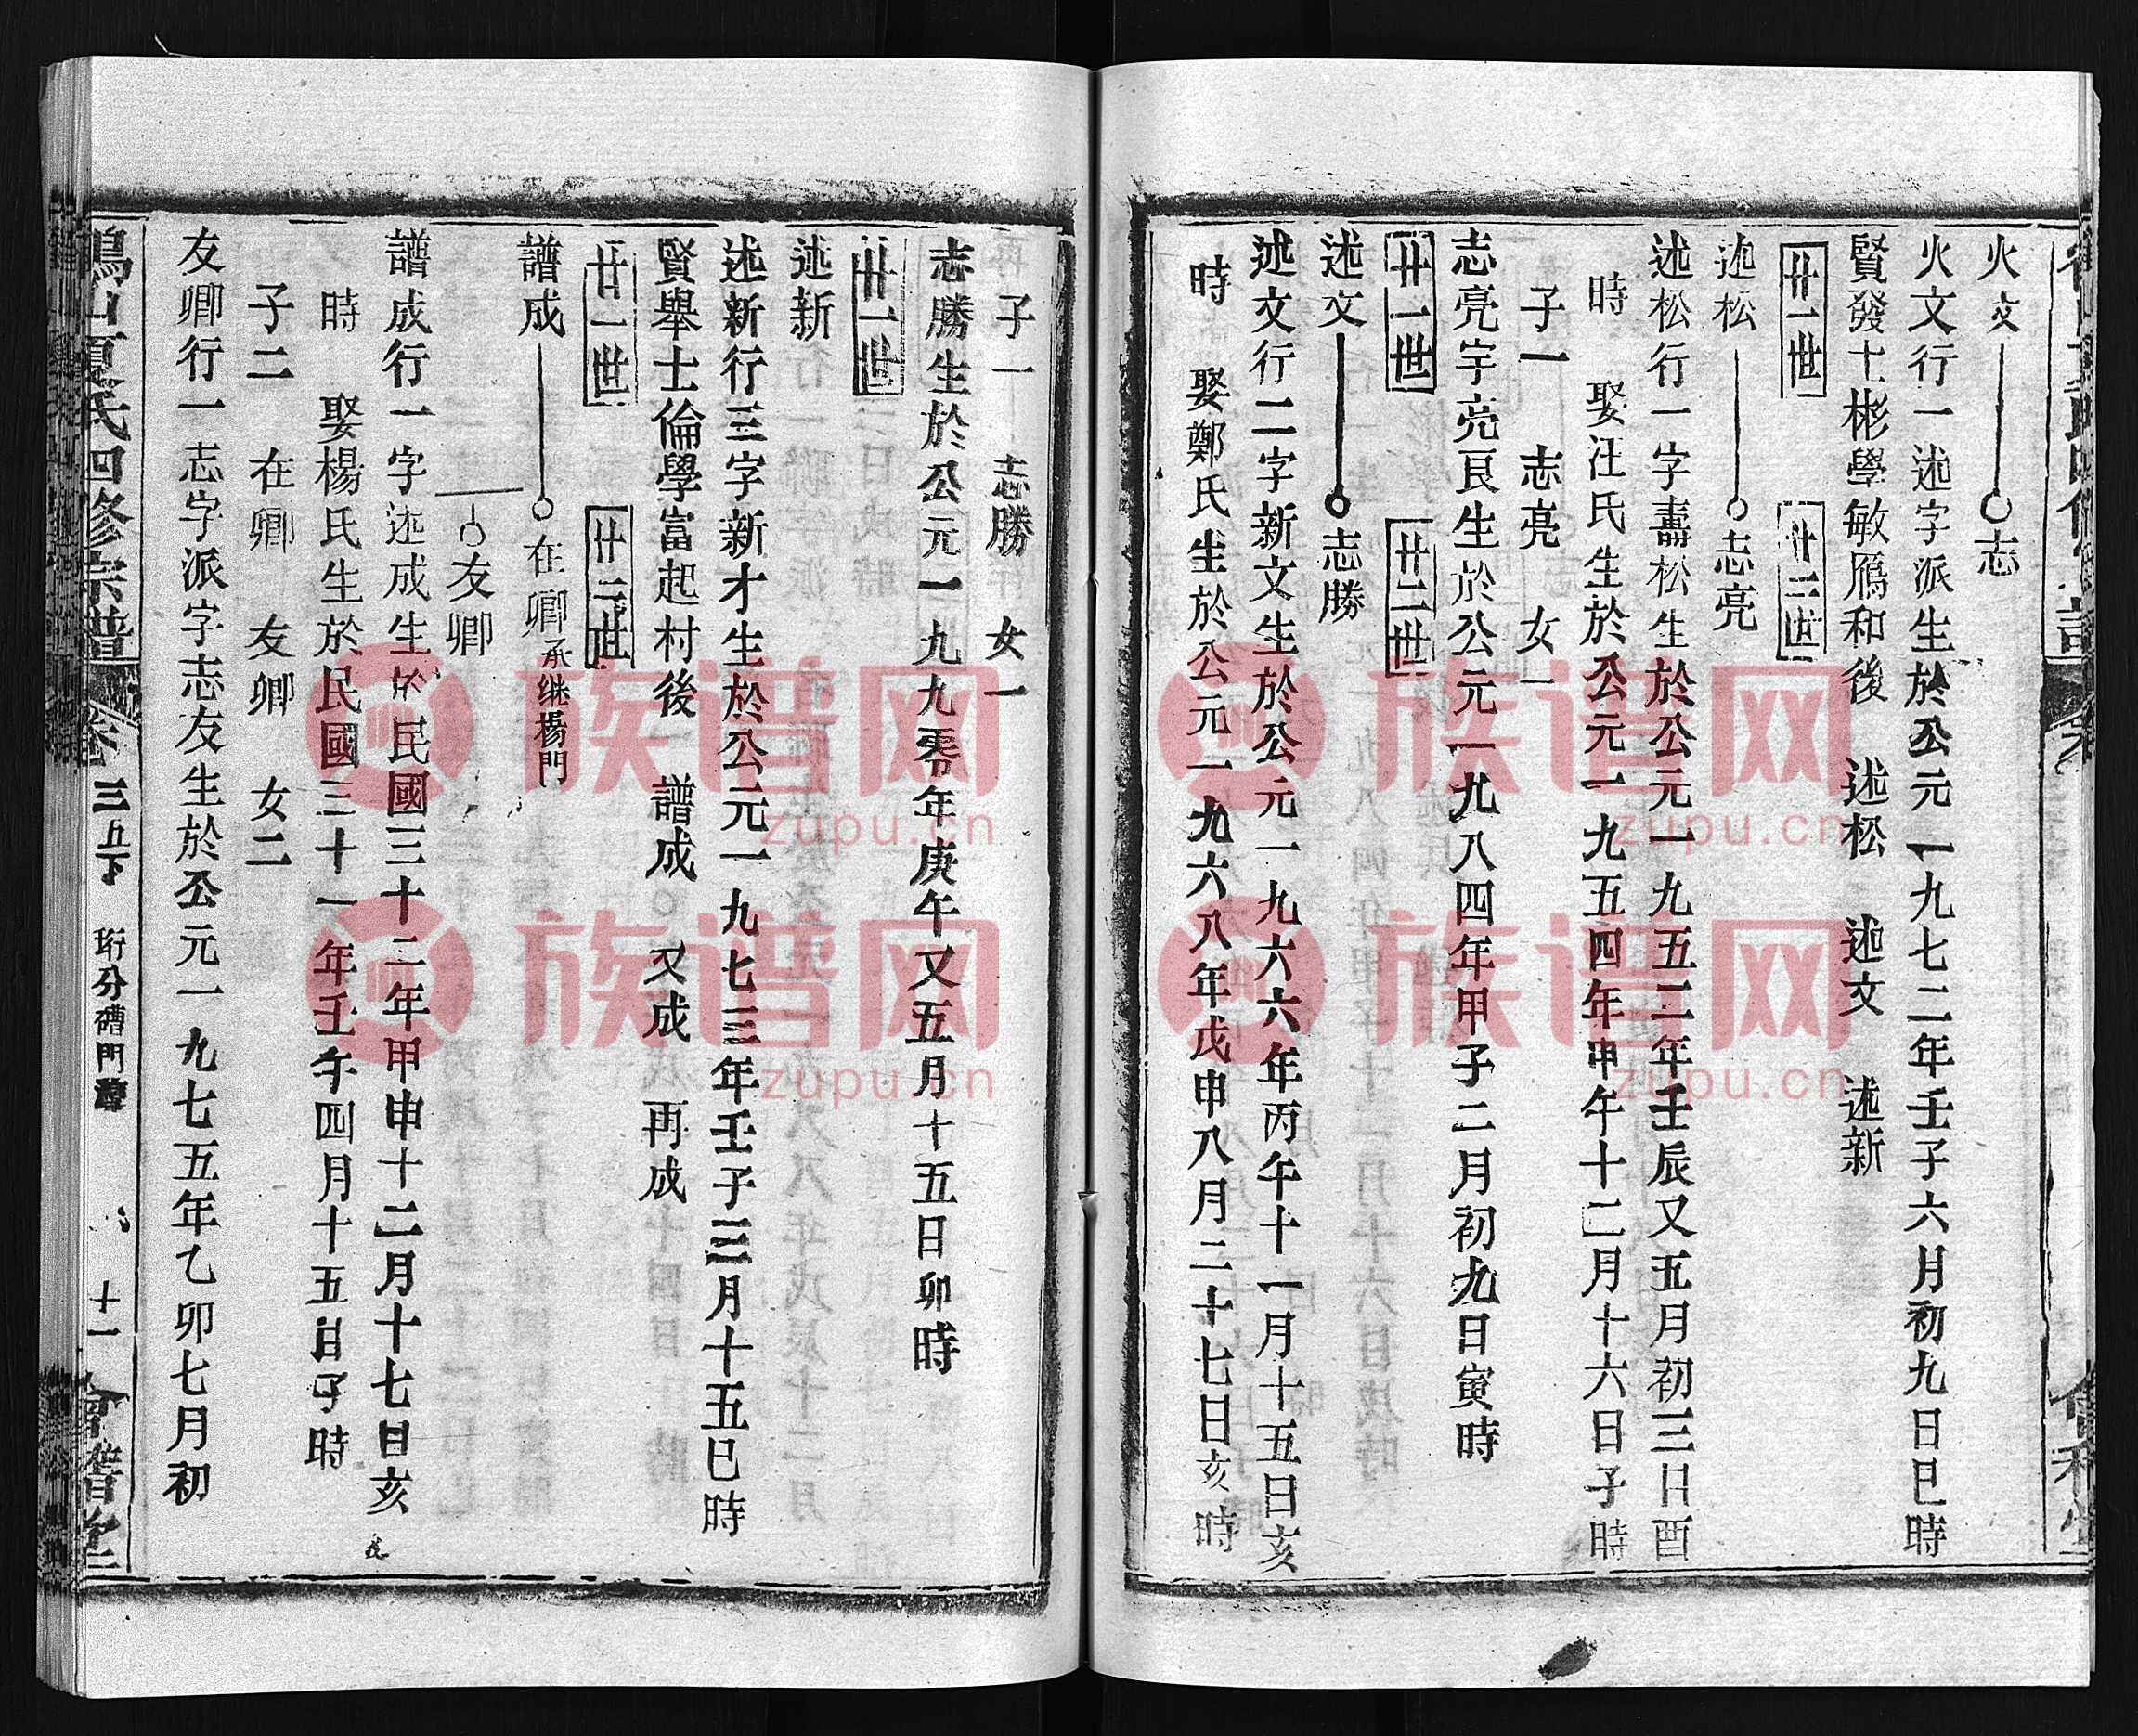 火文　志
火文行一述字派生於公元一九七二年壬子六月初九日巳時
賢發士彬學敏鴈和後　述松　述文　述新
廿一世　廿二世
述松　志亮
述松行一字壽松生於公元一九五二年壬辰又五月初三日酉
時　娶汪氏生於公元一九五四年甲午十二月十六日子時
子一　志亮　女一
志亮字亮良生於公元一九八四年甲子二月初九日寅時
廿一世　廿二世
述文　志勝
述文行二字新文生於公元一九六六年丙午十一月十五日亥
時　娶鄭氏生於公元一九六八年戊申八月二十七日亥時
子一　志勝　女一
志勝生於公元一九九零年庚午又五月十五日卯時
廿一世
述新
述新行三字新才生於公元一九七三年壬子三月十五巳時
賢舉士倫學富起村後　譜成　又成　再成
廿一世　廿二世
譜成　在卿承继楊門
友卿
譜成行一字述成生於民國三十二年甲申十二月十七日亥
時　娶楊氏生於民國三十一年壬午四月十五日子時
子二　在卿　友卿　女二
友卿行一志字派字志友生於公元一九七五年乙卯七月初
鳴山夏氏四修宗譜　卷　三五下　珩分礌門　十一　會譜堂
族谱网
zupu.cn
族谱网
zupu.cn
族谱网
zupu.cn
族谱网
zupu.cn